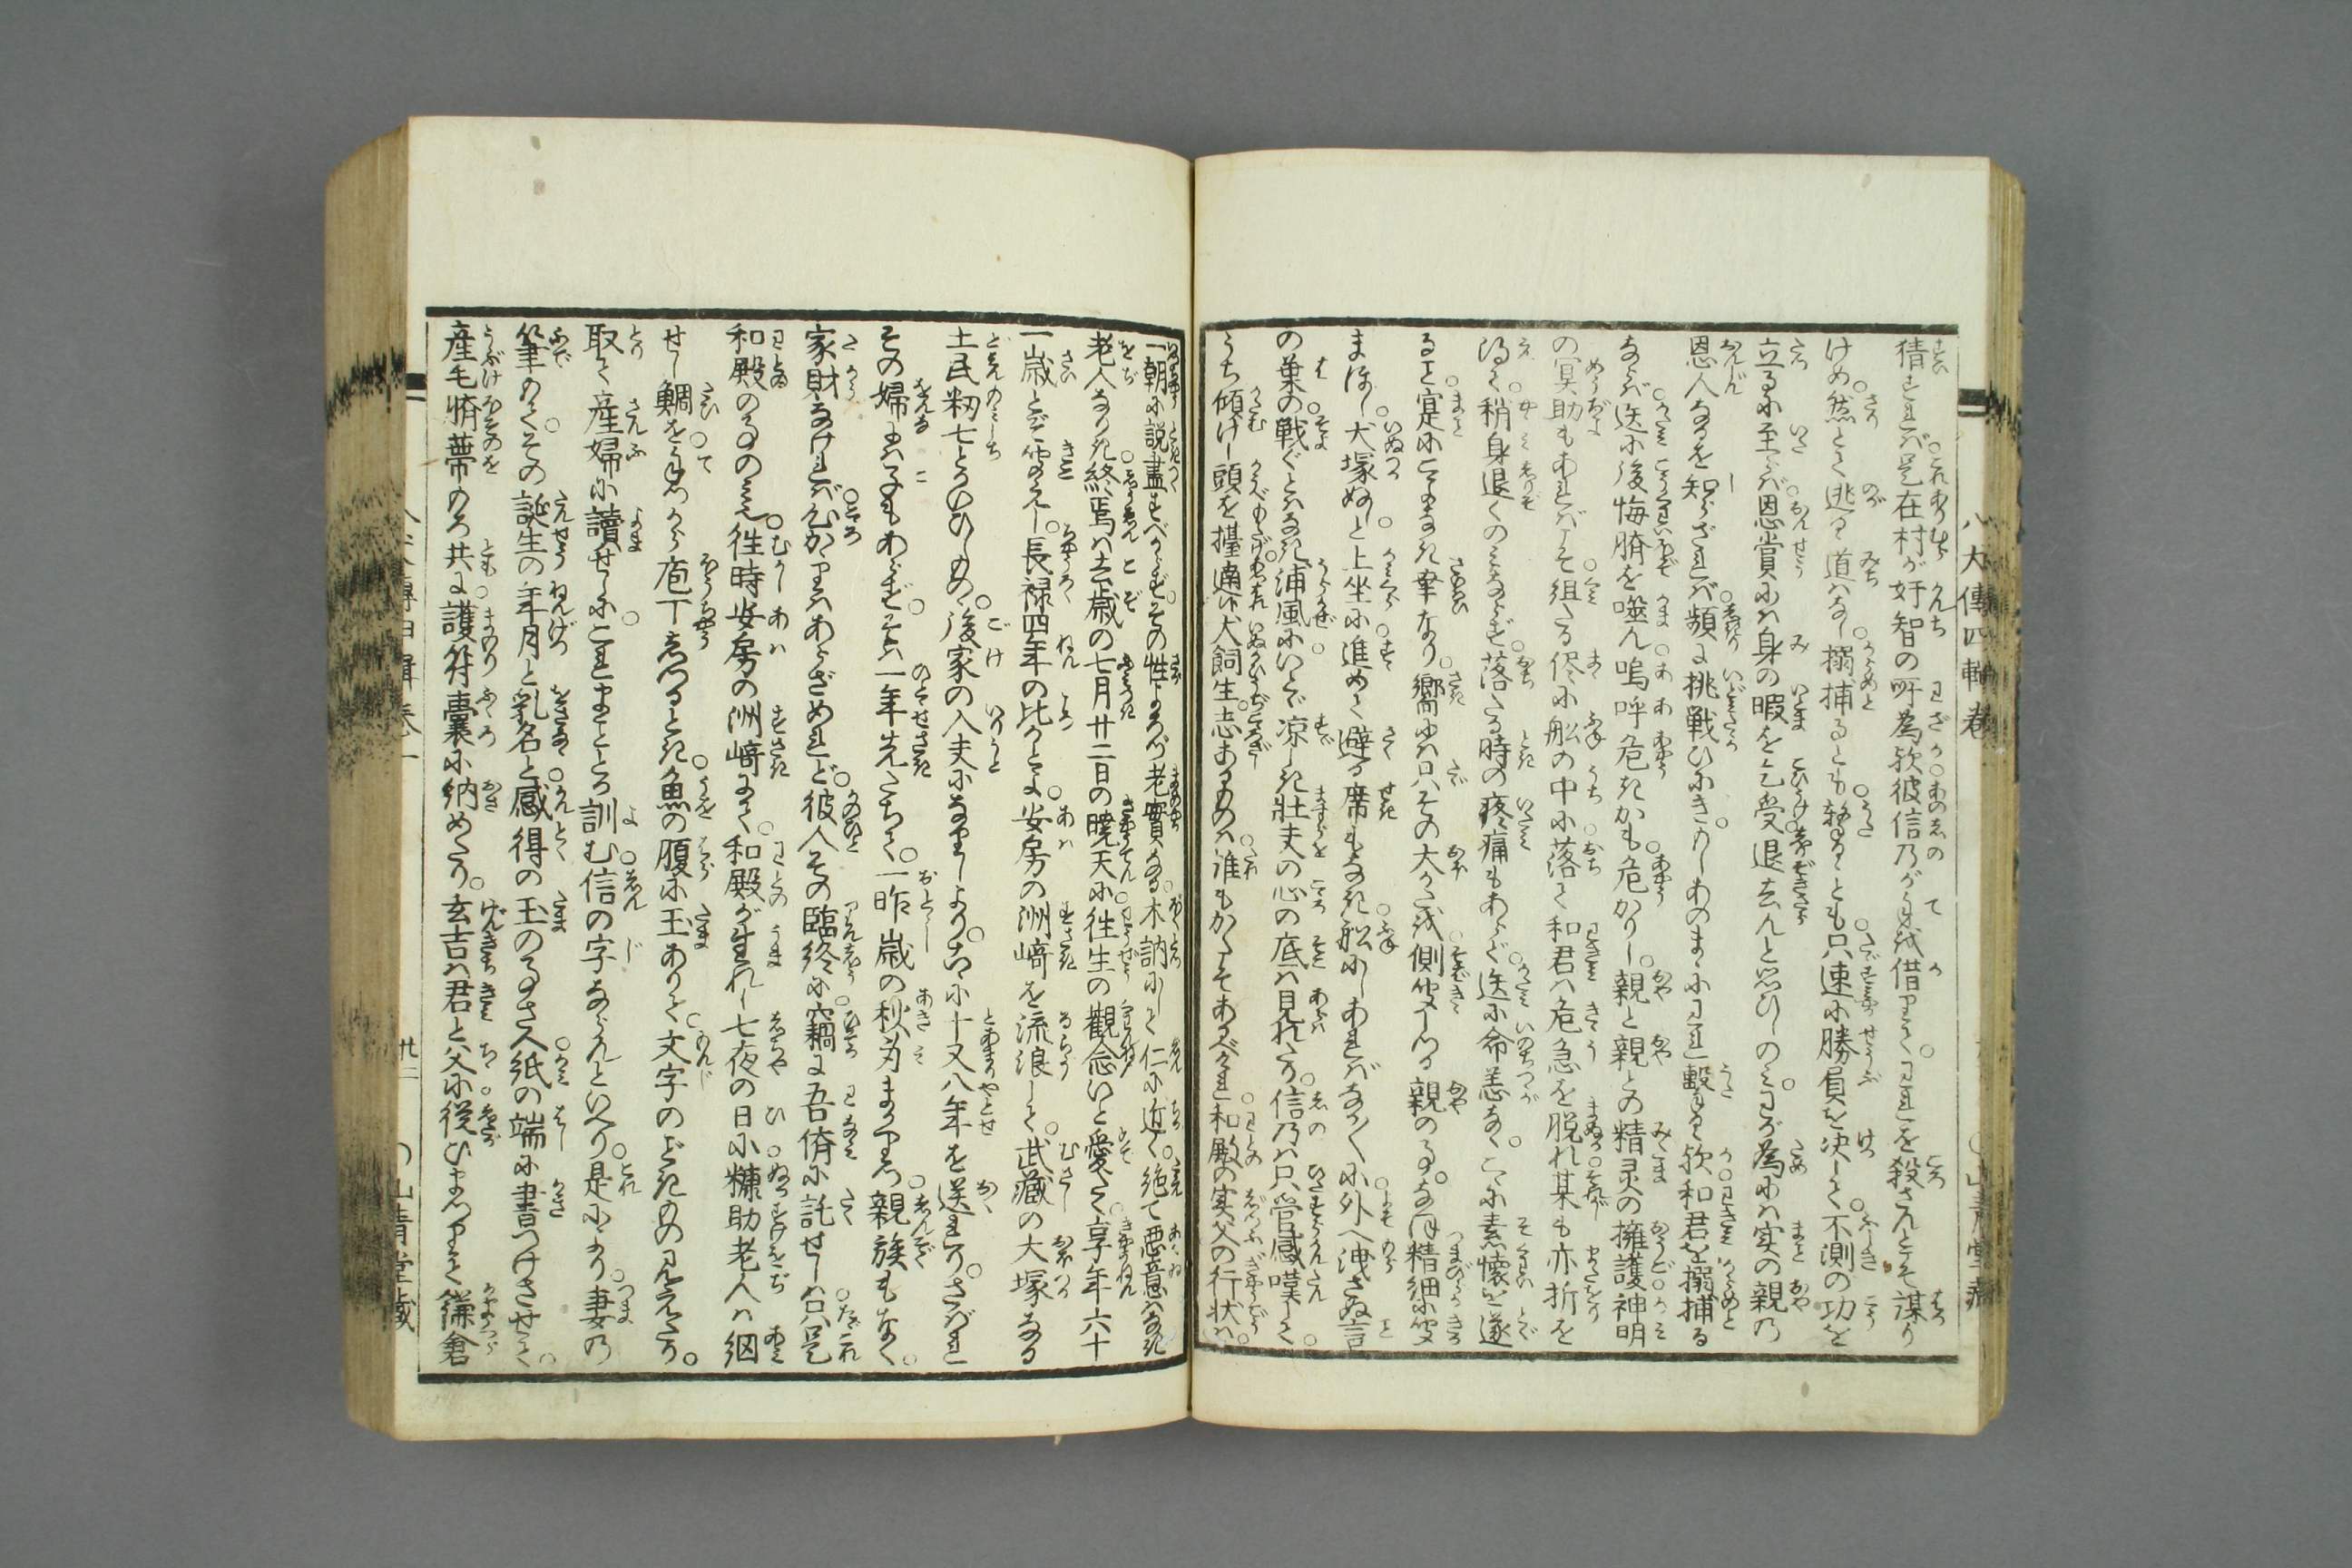 猜すれば是在村が奸智の所為歟彼信乃が手を借りてわれを殺さんとて謀り
けめ。然とて逃る道はなし。搦捕るとも。輸るゝとも。只速に勝負を決して。不測の功を
立るに至らば。恩賞には身の暇を乞受。退去んと思ひしのみ。わが為には実の親の
恩人なるを知らざれば。頻に挑戦ひにき。かしあのまゝにわれ撃るゝ歟。和君を搦捕る
ならば。送に後悔臍を噬ん。嗚呼危きかも。危かりし。親と親との精灵の擁護。神明
の冥助もあればこそ。組たる侭に舩の中に落て。和君は危急を脱れ。某も亦折を
得て。稍身退くのみならず。落たる時の疼痛もあらず。送に命恙なく。こゝに素懐を遂
ること。寔にこよなき幸なり。嚮には只その大かたを。側聞しつる親の事。なほ精細に聞
まほし。犬塚ぬしと。上坐に進めて。避る席もなき。舩にしあればなか〳〵に外へ洩さぬ言
の葉の。戦ぐとはなき浦風に。いとゞ凉しき壮夫の心の底は見れたり。信乃は只管感嘆して。
うち傾けし頭を擡。適い犬飼生。志あるものは。誰もかくこそあるべけれ。和殿の実父の行状は。
一朝に説盡すべからず。その性よろづ老實なる。木訥にして仁に近く。絶て悪意はなき
老人なりき。終焉は去歳の七月廿二日の暁天に。往生の觀念いと愛たく。享年六十
一歳とぞ聞えし。長禄四年の比かとよ。安房の洲﨑を流浪して。武藏の大塚なる
土民籾七とかいひしもの。後家の入夫になりしより。こゝに十又八年を送れり。さばれ
その婦には子もあらず。そは一年先たちて。一昨歳の秋身まかりぬ。親族もなく。
家財なければ。心がゝりはあらざめれど。彼人その臨終に。竊に吾儕に託せしは。只是
和殿の事のみ。徃時安房の洲﨑にて。和殿が生れし七夜の日に。糠助老人は網
せし鯛を。手づから庖丁しつるとき。魚の腹に玉ありて。文字のごときもの見えたり。
取て産婦に讀せしに。これまことゝ訓む信の字ならんといへり。是により。妻の
筆もて。その誕生の年月と乳名と。感得の玉の事さへ。紙の端に書つけさせて。
産毛臍帶もろ共に。護符嚢に納めたり。玄吉は君と父に從ひまゐりて。鎌倉
八犬傳四輯巻一
山青堂藏
八犬傳四輯巻一
廿二
山青堂藏